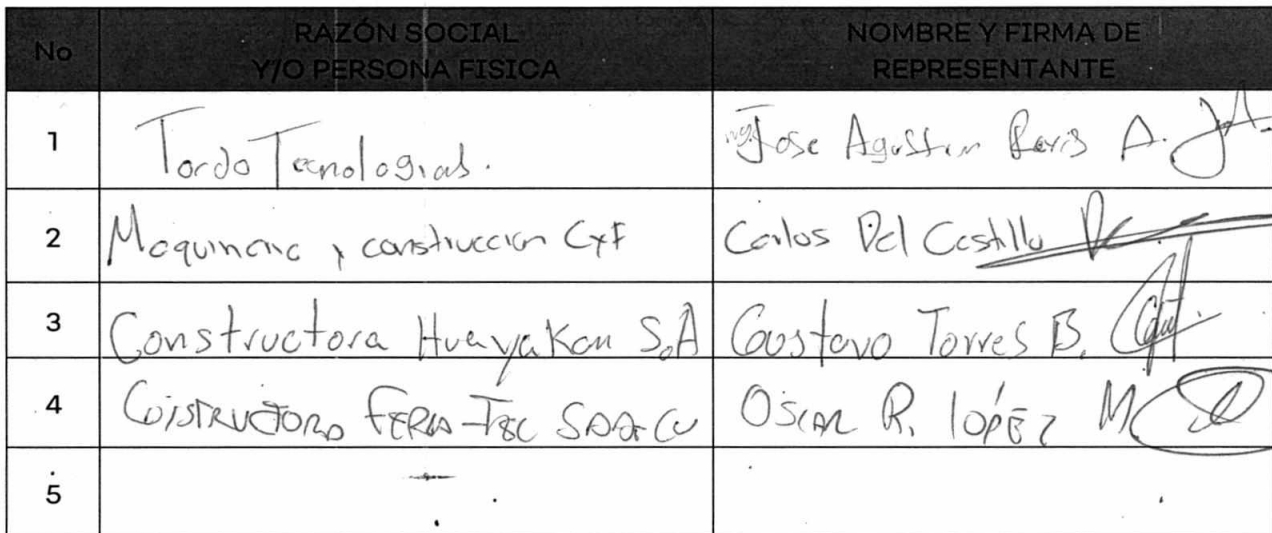 No
RAZÓN SOCIAL
Y/O PERSONA FISICA
NOMBRE Y FIRMA DE
REPRESENTANTE
1
Tordo Tecnologias.
Ing. Jose Agustin A.
2
Maquinaria y construccion CyF
Carlos Del Castillo
3
Constructora Huayakan S.A
Gustavo Torres B.
4
SA de CV
OSCAR R. LÓPEZ M
5